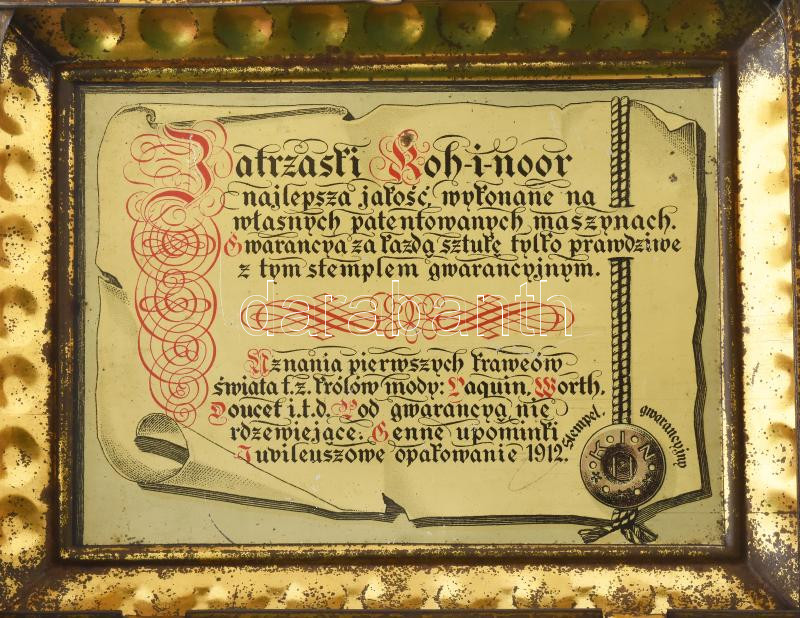 Zatrzaski Koh-i-noor
najlepsza jakość, wykonane na
własnych patentowanych maszynach.
Gwarancya za każdą sztukę tylko prawdziwe
z tym stemplem gwarancyjnym.
darabanth
Uznania pierwszych kraweów
świata t.z. królów mody: Paquin, Worth,
Doucet i.t.d. Pod gwarancyą nie
rdzewiejące. Cenne upominki
Juvileuszowe opakowanie 1912.
Stempel. gwarancyjny
K·I·N